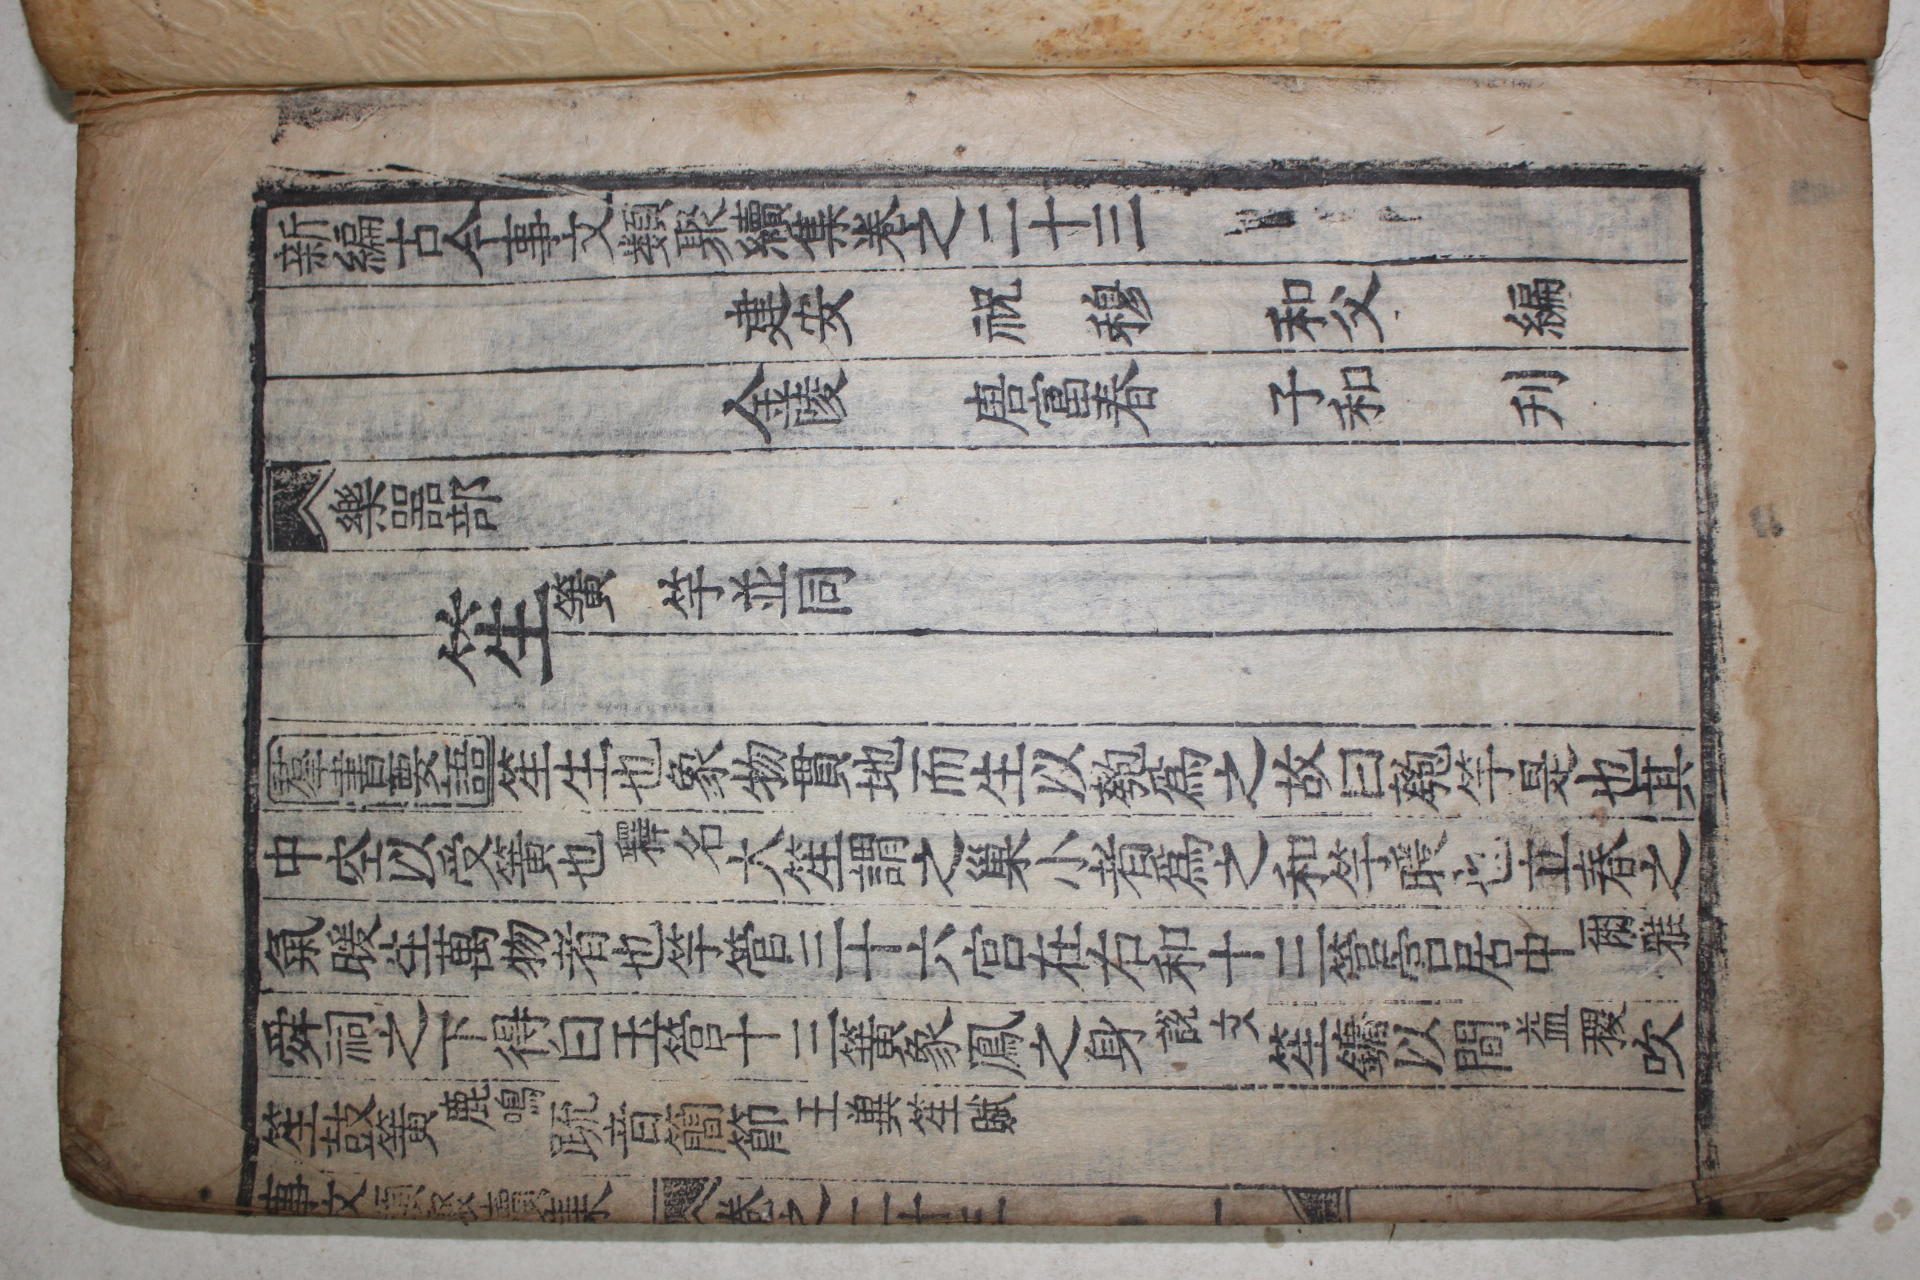 新編古今事文類聚續集卷之二十三
建安 祝穆 和父 編
金陵 唐富春 子和 刋
樂器部
笙 簧 竽並同
羣書要語 笙生也象物貫地而生以匏爲之故曰匏竽是也其
中空以受簧也釋名大笙謂之巢小者爲之和竽暖也立春之
氣暖生萬物者也竽管三十六宫在右和十三管宫居中爾雅
舜祠之下得白玉管十三簧象鳳之身說文笙鏞以間益稷吹
笙鼓簧鹿鳴疏音簡節王褒笙賦
事文類聚續集 卷之二十三 一